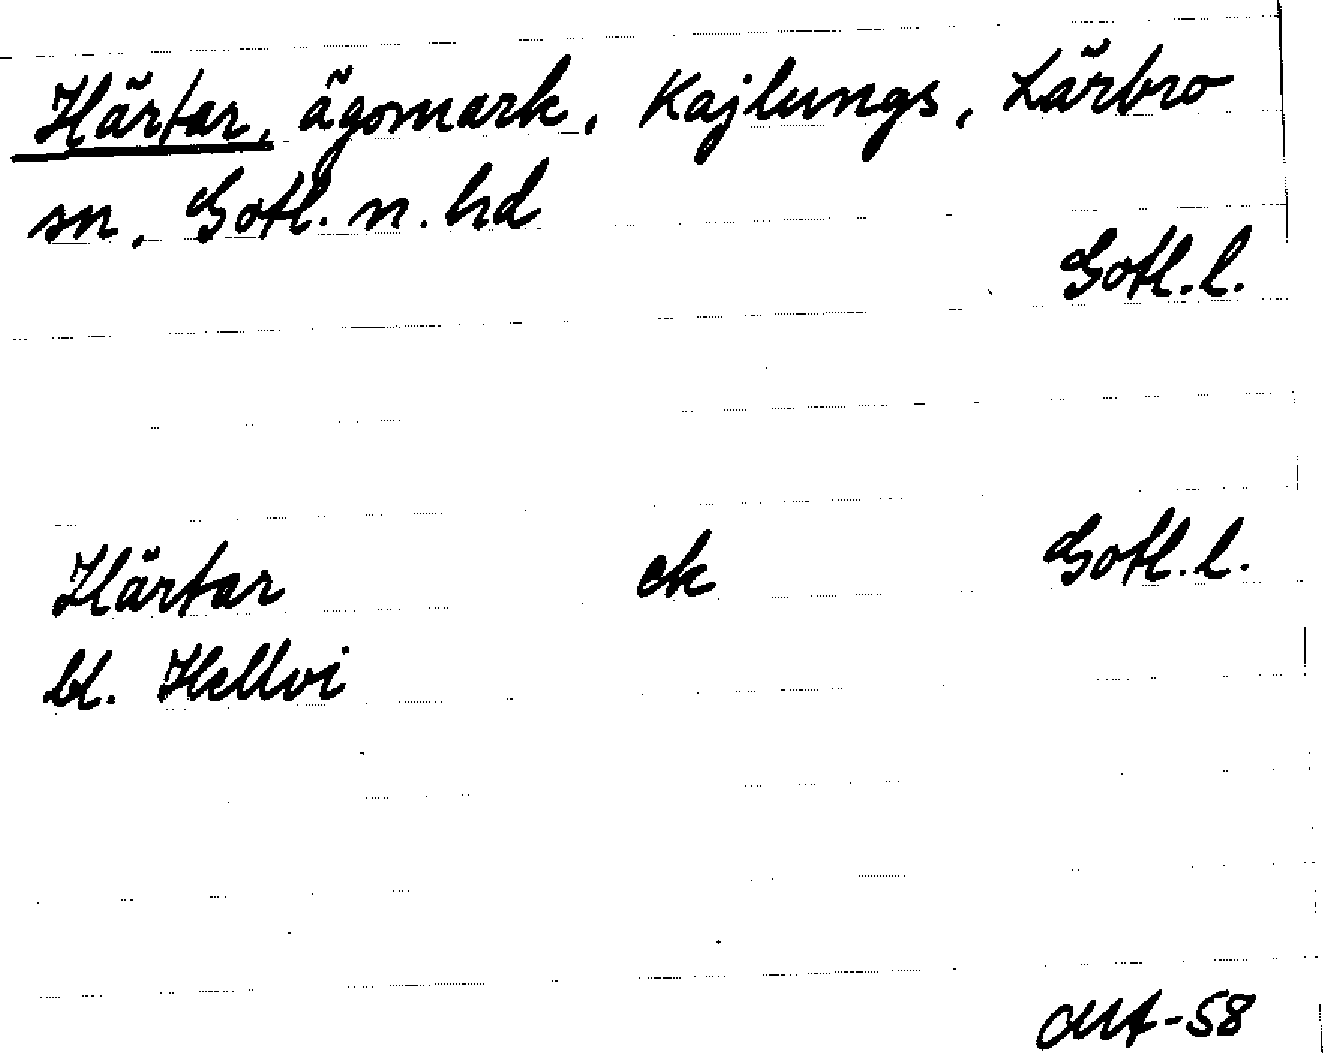 Härtar, ägomark, Kajlungs, Lärbro
sn, Gotl. n. hd
Gotl. l.
Härtar ek Gotl. l.
bl. Hellvi